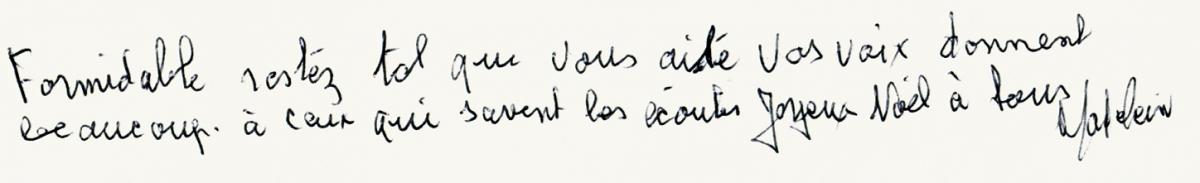 Formidable restéz tel que vous aidé Vos voix donnent
beaucoup. à ceux qui savent les écouter Joyeux Noël à tous